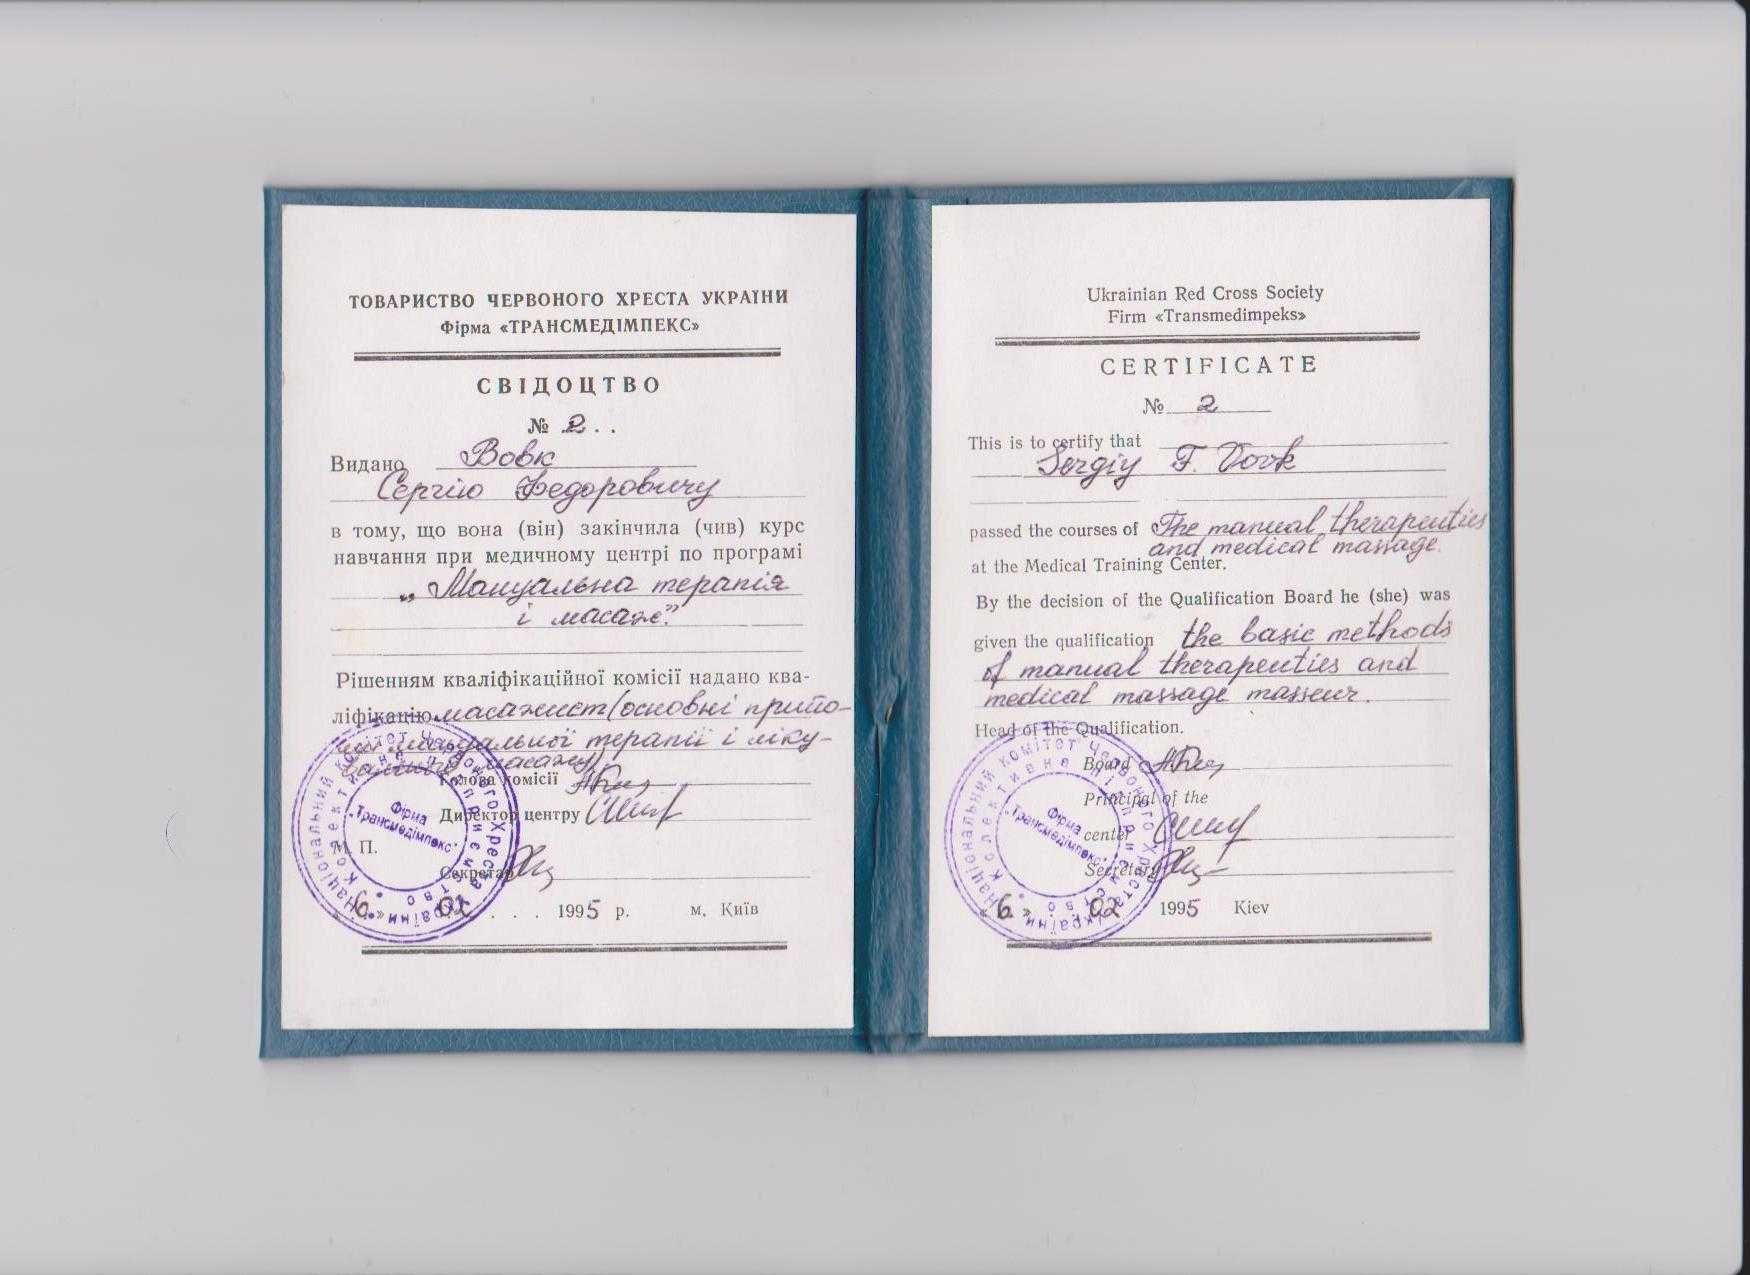 ТОВАРИСТВО ЧЕРВОНОГО ХРЕСТА УКРАЇНИ
Фірма «ТРАНСМЕДІМПЕКС»
СВІДОЦТВО
№ 2 . .
Видано Вовк
Сергію Федоровичу
в тому, що вона (він) закінчила (чив) курс
навчання при медичному центрі по програмі
„Мануальна терапія
і масаж"
Рішенням кваліфікаційної комісії надано ква-
ліфікацію масажист (основні прийо-
ми мануальної терапії і ліку-
вального масажу)
Голова комісії
Директор центру
М. П.
Секретар
«6» 02 . . . 1995 р. м. Київ
Національний комітет Червоного Хреста України
Колективне підприємство
Фірма
"Трансмедімпекс"
Ukrainian Red Cross Society
Firm «Transmedimpeks»
CERTIFICATE
№ 2
This is to certify that
Sergiy F. Vovk
passed the courses of The manual therapeuties
and medical massage.
at the Medical Training Center.
By the decision of the Qualification Board he (she) was
given the qualification the basic methods
of manual therapeuties and
medical massage masseur.
Head of the Qualification.
Board
Principal of the
center
Secretary
«6» 02 1995 Kiev
Національний комітет Червоного Хреста України
Колективне підприємство
Фірма
"Трансмедімпекс"